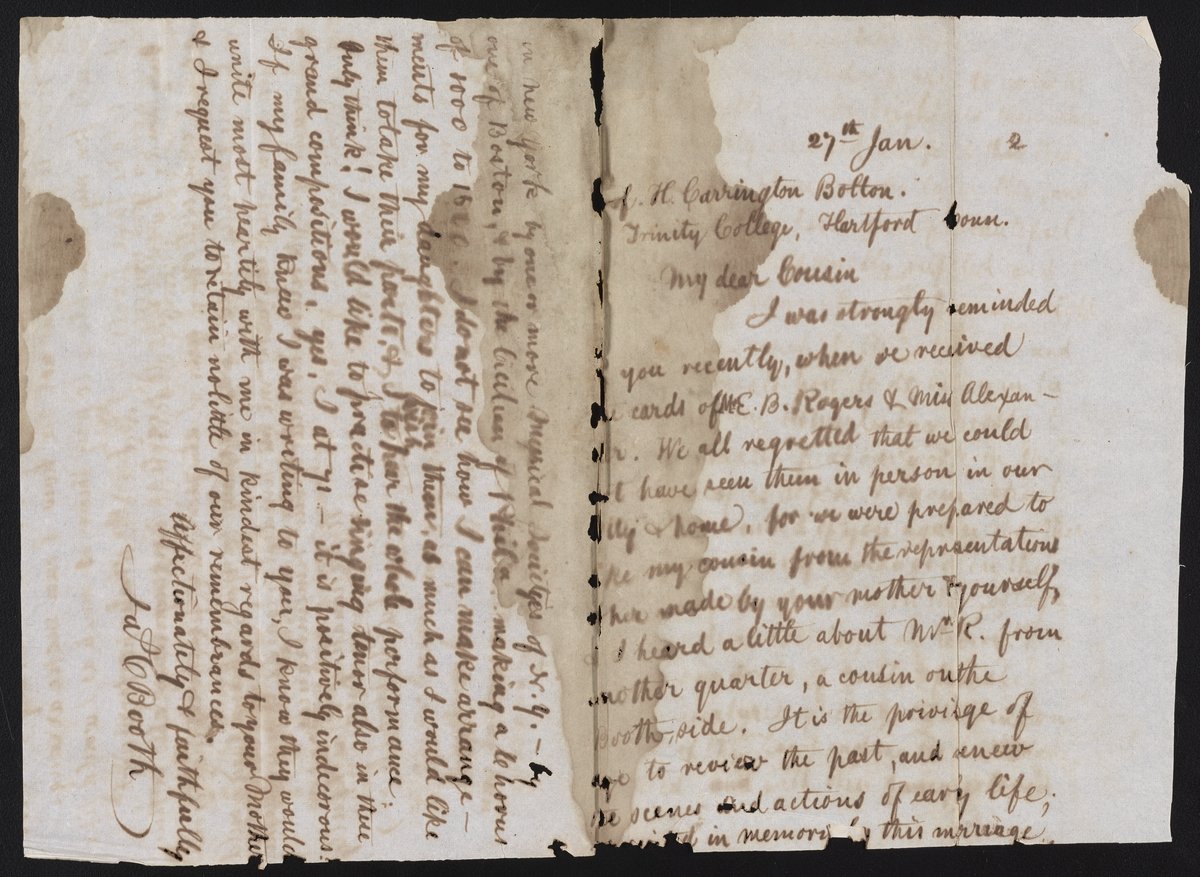 27th Jan. 2
H. Carrington Bolton.
Trinity College, Hartford Conn.
My dear Cousin
I was strongly reminded
you recently, when we received
cards of Mr E. B. Rogers & Miss Alexan-
r. We all regretted that we could
t have seen them in person in our
& home, for we were prepared to
ke my cousin from the representations
her made by your mother & yourself,
I heard a little about Mr R. from
nother quarter, a cousin on the
Booth side. It is the privinge of
age to review the past, and renew
e scenes and actions of eary life;
in memory by this mrriage
in New York by one or more Musical Societyes of N. Y. – by
one of Boston, & by the Cecilien of Phila. making a chorus
of 1000 to 1500. I do not see how I can make arrange-
ments for my daughters to join them as much as I would like
them to take their parts, & I wish to hear the whole performance;
Only think! I would like to practise singing tenor also in thee
grand compositions, yes, I at 71 – it is positively indecorous!
If my family knew I was writing to you, I know they would
unite most heartily with me in kindest regards to your Mother
& I request you to retain no little of our remembrances.
Affectionately & faithfully
Ja C Booth